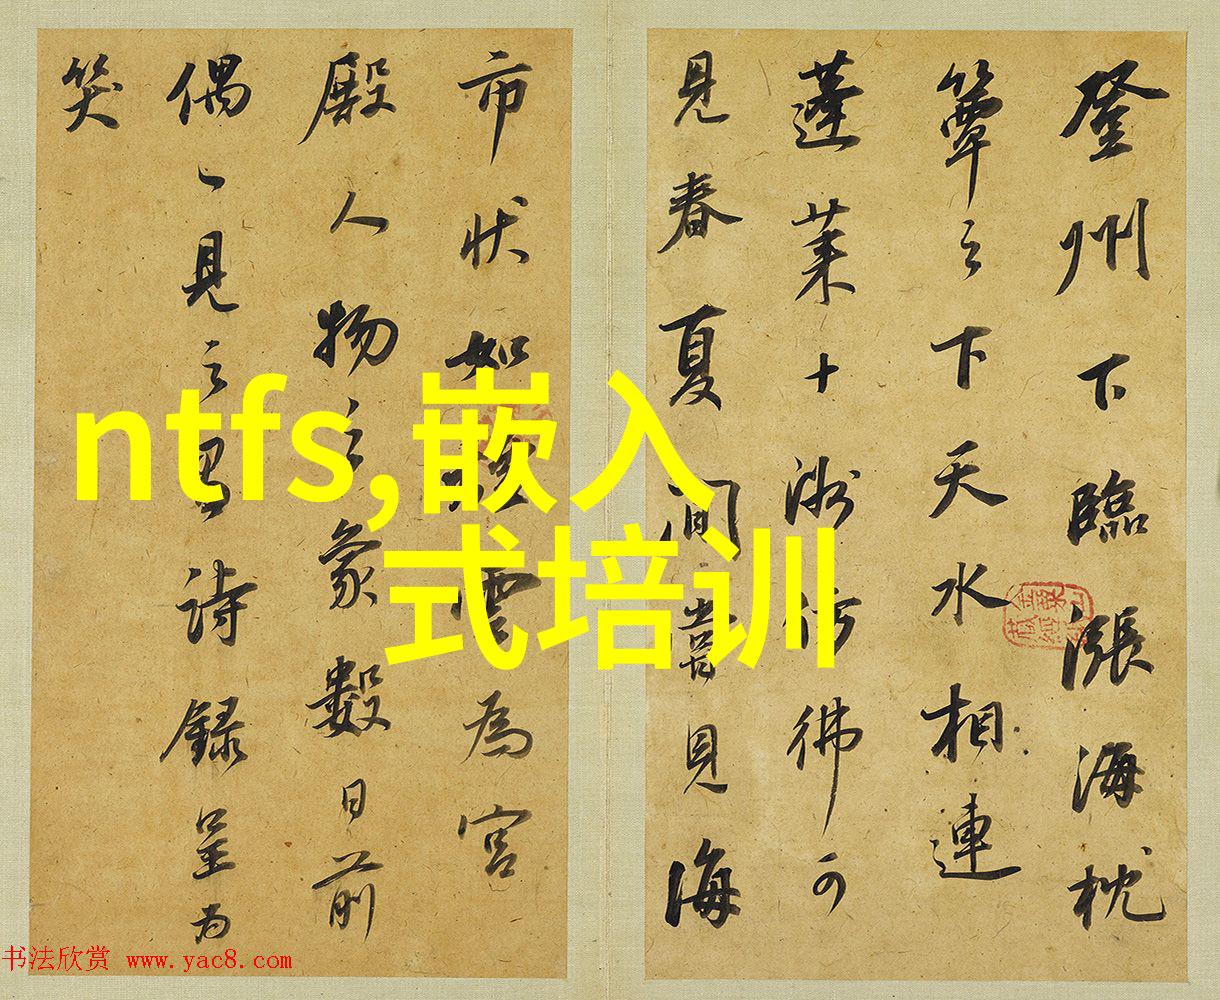 登州下臨漲海枕
簟之下天水相連
蓬莱十洲彷彿可
見春夏間嘗見海
市状如雲為宮
殿人物之象數日前
偶一見之寫詩録呈為
笑
ntfs,嵌入
式培训
书法欣赏 www.yac8.com